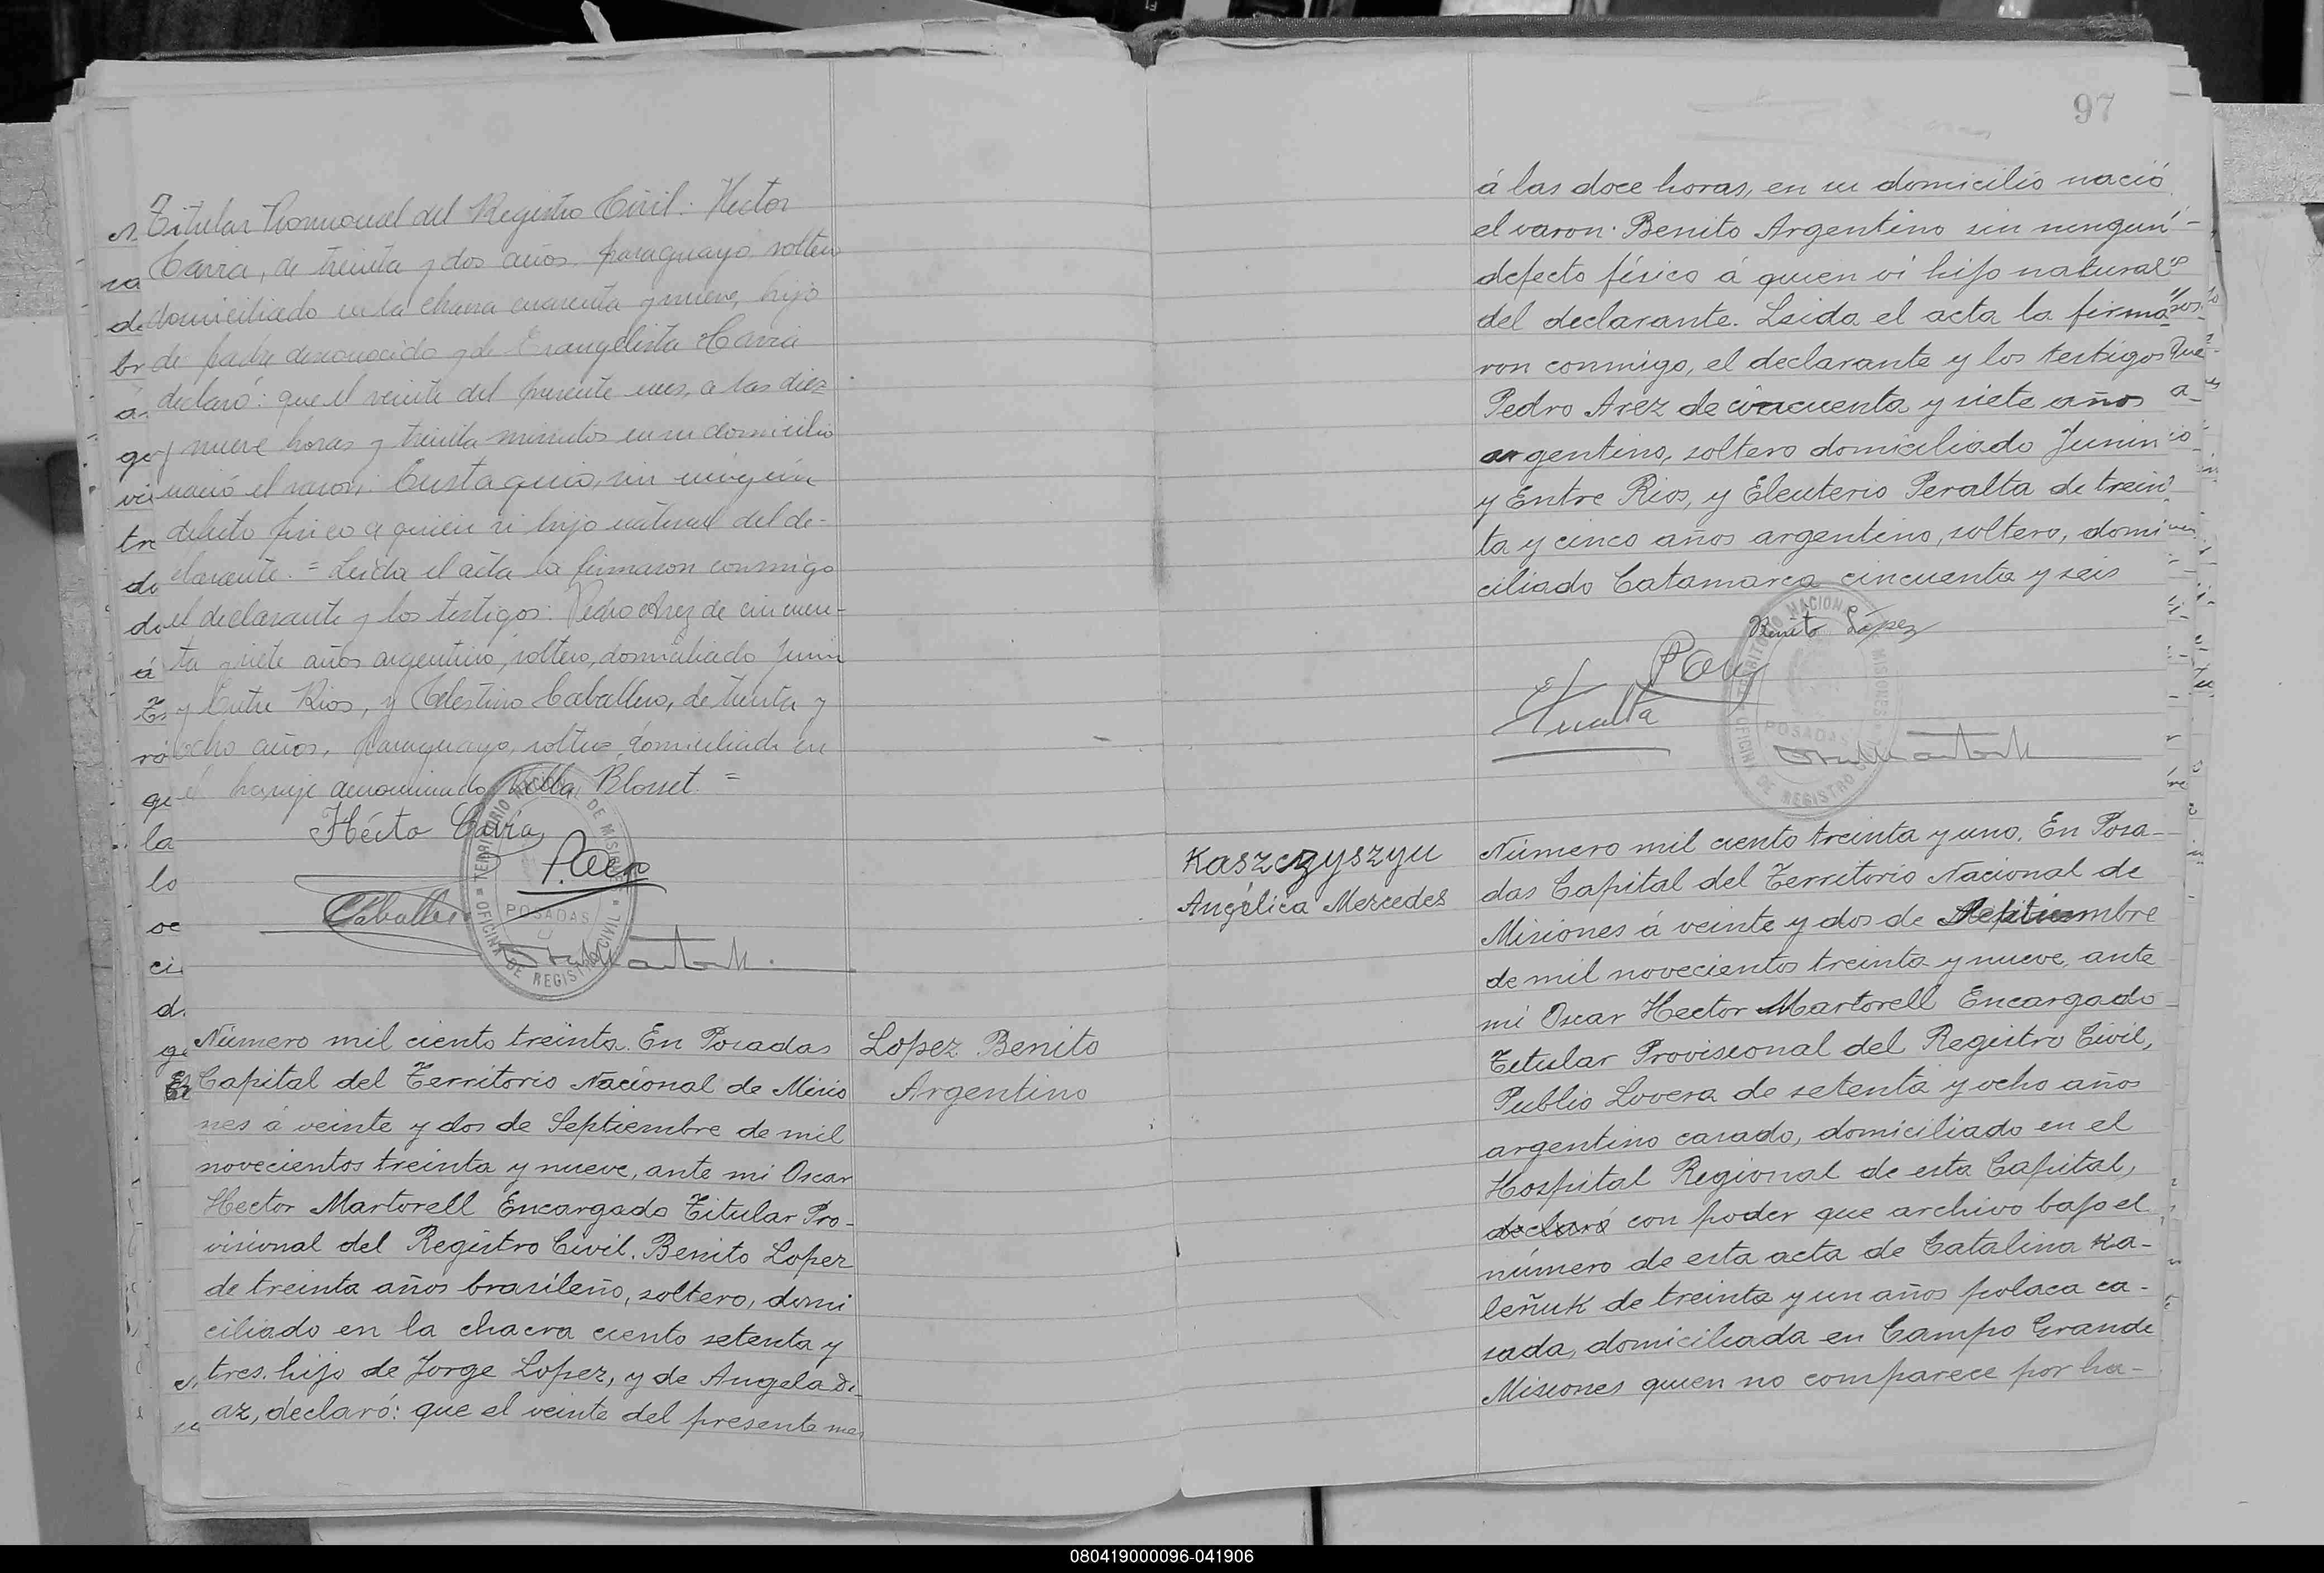 Titular Provisional del Registro Civil: Hector
Cavia, de treinta y dos años, paraguayo, soltero
domiciliado en la chacra cuarenta y nueve, hijo
de padre desconocido y de Evangelista Cavia
declaró: que el veinte del presente mes, a las diez
y nueve horas y treinta minutos en su domicilio
nació el varon: Eustaquio, sin ningún
defecto fisico a quien vi hijo natural del de-
clarante.= Leida el acta la firmaron conmigo
el declarante y los testigos: Pedro Arez de cincuen-
ta y siete años argentino, soltero, domiciliado Junin
y Entre Rios, y Celestino Caballero, de treinta y
ocho años, paraguayo, soltero, domiciliado en
el paraje denominado Villa Blosset.=
Hécto Cavia
P. Arez
Caballero
TERRITORIO NACIONAL DE MISIONES
POSADAS
OFICINA DE REGISTRO CIVIL
Número mil ciento treinta. En Posadas
Capital del Territorio Nacional de Misio
nes á veinte y dos de Septiembre de mil
novecientos treinta y nueve, ante mi Oscar
Hector Martorell Encargado Titular Pro-
visional del Registro Civil. Benito Lopez
de treinta años brasileño, soltero, domi
ciliado en la chacra ciento setenta y
tres. hijo de Jorge Lopez, y de Angela Di-
az, declaró: que el veinte del presente mes
Lopez Benito
Argentino
97
á las doce horas, en su domicilio nació
el varon: Benito Argentino sin ningun
defecto físico á quien vi hijo natural
del declarante. Leida el acta la firma-
ron conmigo, el declarante y los testigos
Pedro Arez de cincuenta y siete años
argentino, soltero domiciliado Junin
y Entre Rios, y Eleuterio Peralta de trein
ta y cinco años argentino, soltero, domi
ciliado Catamarca cincuenta y seis
Benito López
TERRITORIO NACIONAL DE MISIONES
POSADAS
OFICINA DE REGISTRO CIVIL
Kaszczyszyu
Angélica Mercedes
Número mil ciento treinta y uno. En Posa-
das Capital del Territorio Nacional de
Misiones á veinte y dos de Septiembre
de mil novecientos treinta y nueve, ante
mi Oscar Hector Martorell Encargado
Titular Provisional del Registro Civil,
Publio Lovera de setenta y ocho años
argentino casado, domiciliado en el
Hospital Regional de esta Capital,
declaró con poder que archivo bajo el
número de esta acta de Catalina Ka-
leñuk de treinta y un años polaca ca-
sada, domiciliada en Campo Grande
Misiones quien no comparece por ha-
080419000096-041906